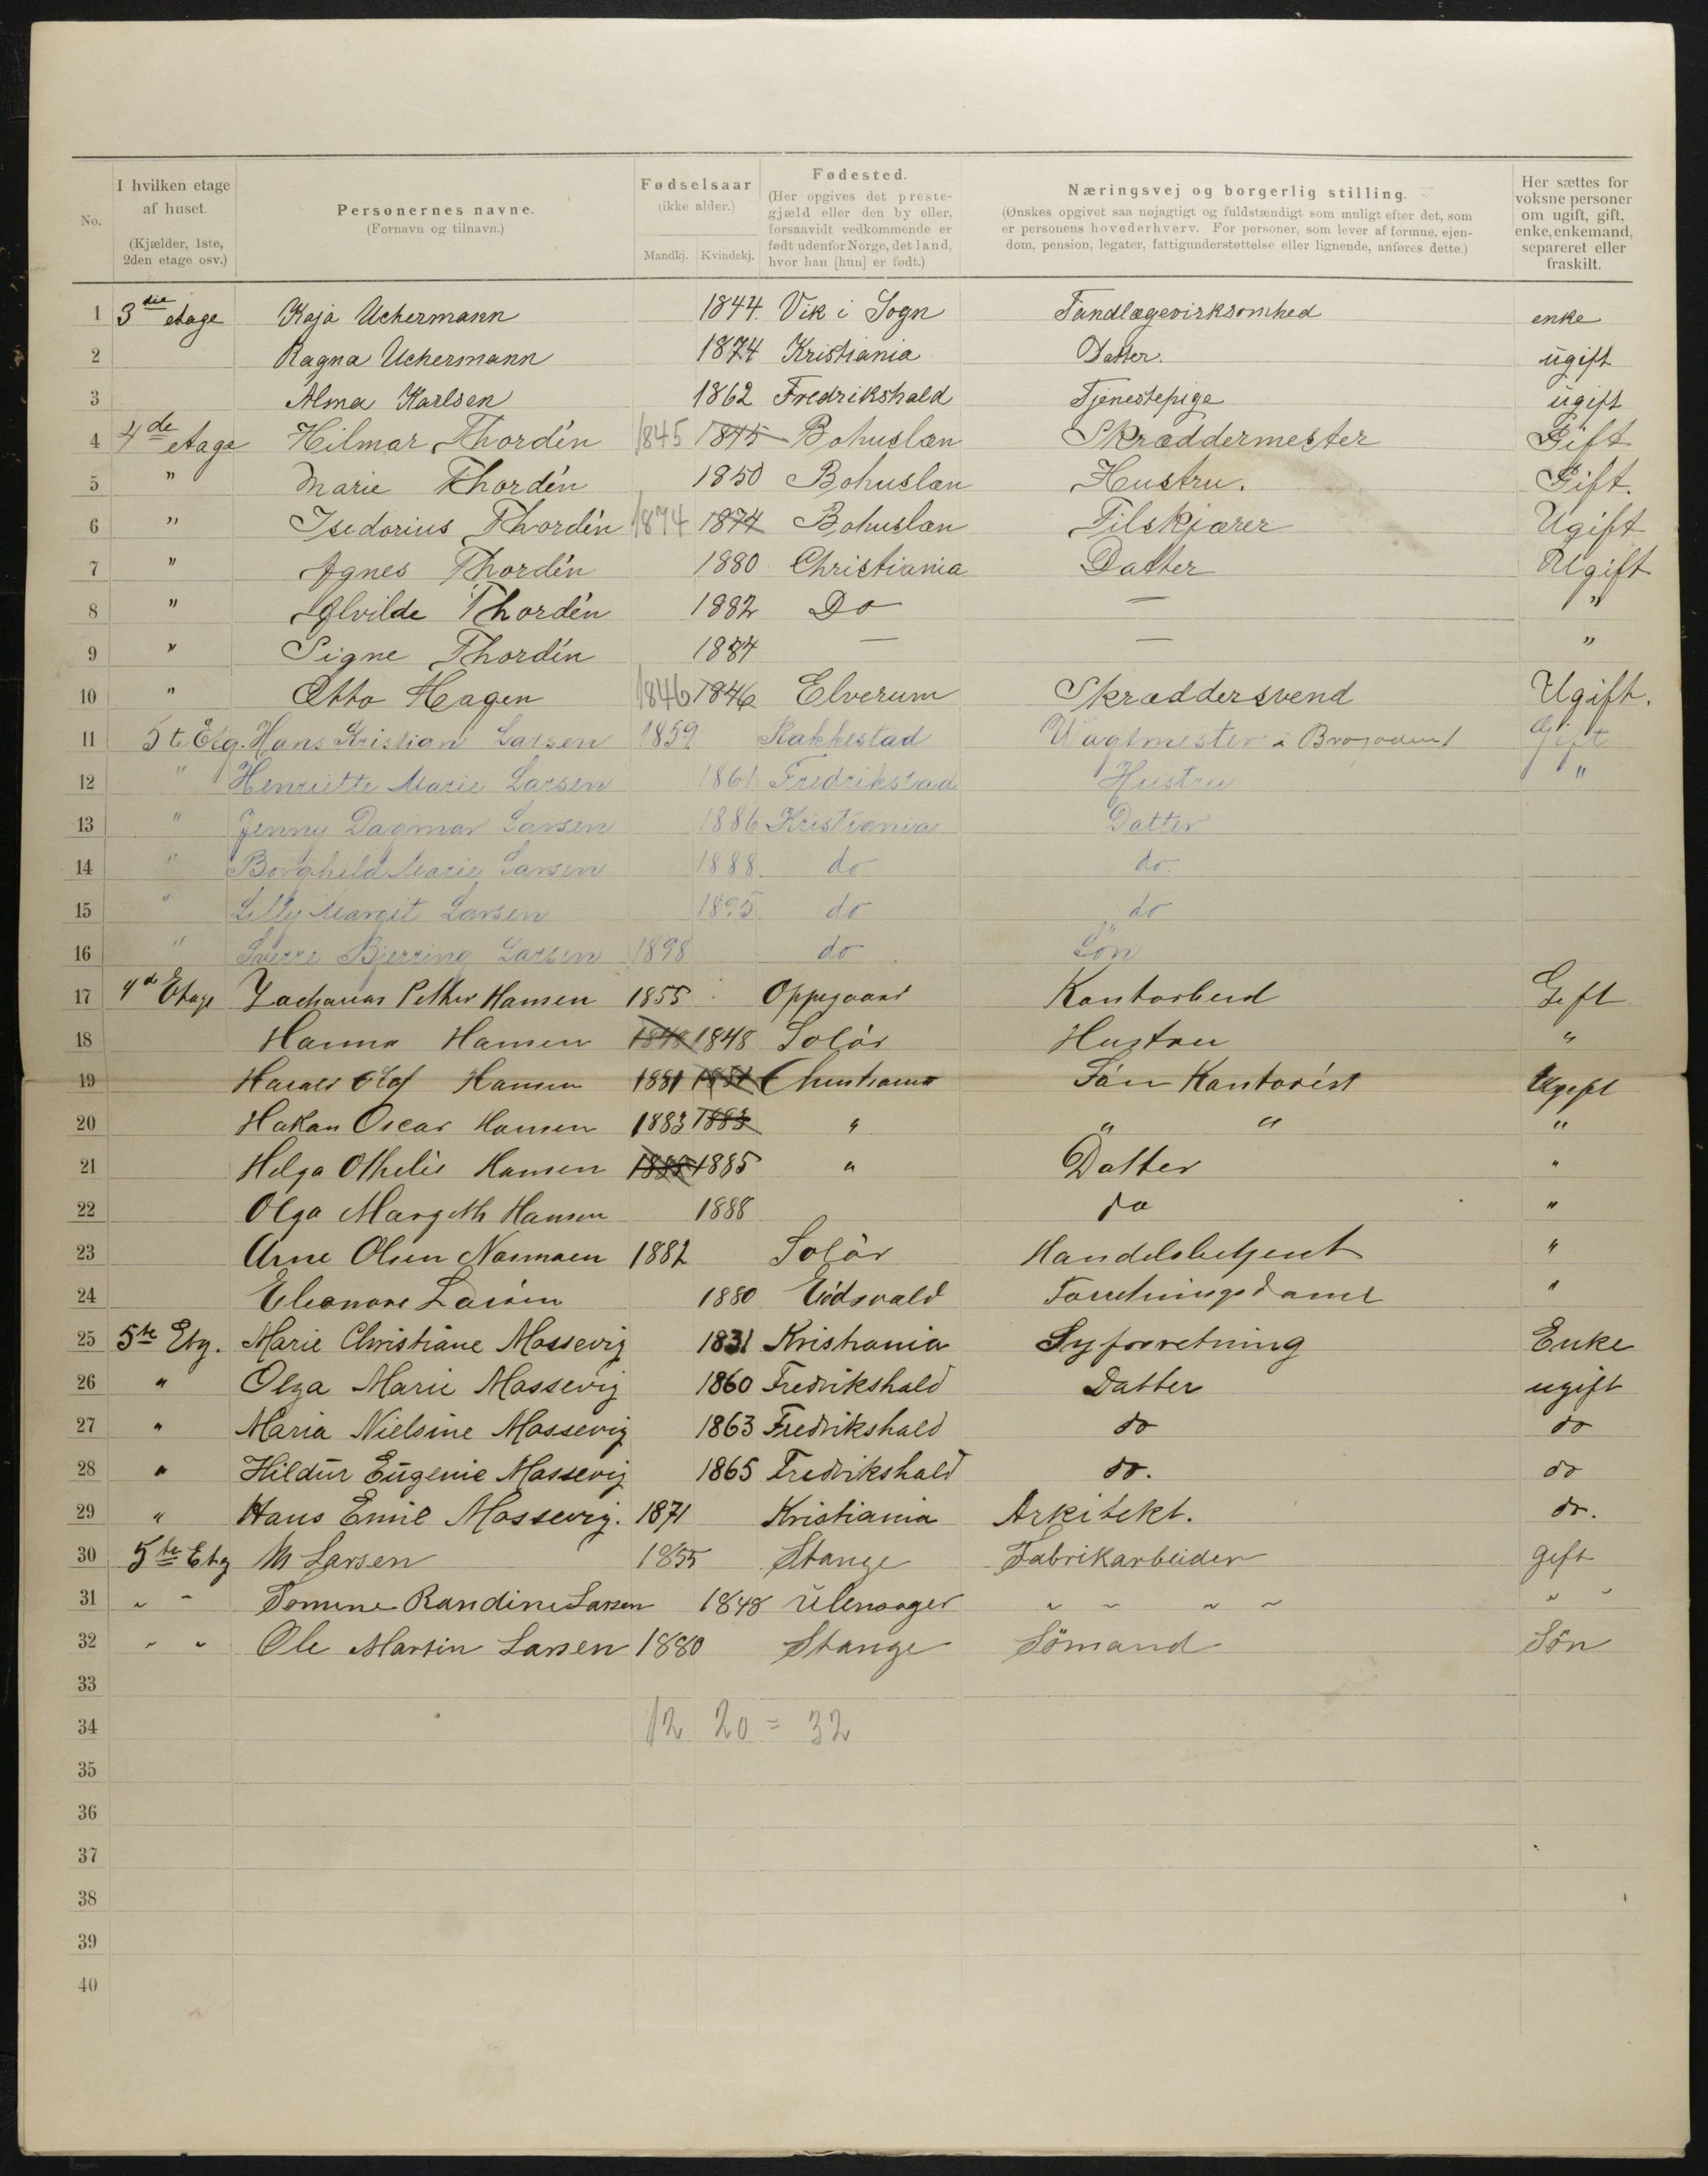 No. | I hvilken etage af huset. (Kjælder, 1ste, 2den etage osv.) | Personernes navne. (Fornavn og tilnavn.) | Fødselsaar (ikke alder.) Mandkj. Kvindekj. | Fødested. (Her opgives det prestegjæld eller den by eller, forsaavidt vedkommende er født udenfor Norge, det land, hvor han [hun] er født.) | Næringsvej og borgerlig stilling. (Ønskes opgivet saa nøjagtigt og fuldstændigt som muligt efter det, som er personens hovederhverv. For personer, som lever af formue, ejendom, pension, legater, fattigunderstøttelse eller lignende, anføres dette.) | Her sættes for voksne personer om ugift, gift, enke, enkemand, separeret eller fraskilt.
1 3die etage Kaja Uchermann 1844. Vik i Sogn Tandlægevirksomhed enke
2 Ragna Uchermann 1874 Kristiania Datter. ugift
3 Alma Karlsen 1862 Fredrikshald Tjenestepige ugift
4 4de etage Hilmar Thordén 1845 1845 Bohuslan Skræddermester Gift
5 " Marie Thordén 1850 Bohuslan Hustru. Gift.
6 " Isedorius Thordén 1874 1874 Bohuslan Tilskjærer Ugift
7 " Agnes Thordén 1880 Christiania Datter Ugift
8 " Alvilde Thordén 1882 Do — "
9 " Signe Thordén 1884 — — "
10 " Otto Hagen 1846 1846 Elverum Skræddersvend Ugift.
11 5te Etg. Hans Kristian Larsen 1859 Rakkestad Vagtmester i Gift
12 " Henriette Marie Larsen 1861 Fredrikstad Hustru "
13 " Jenny Dagmar Larsen 1886 Kristiania Datter
14 " Borghild Marie Larsen 1888. do do.
15 " Lilly Margit Larsen 1895 do do
16 " Sverre Bjerring Larsen 1898 do Søn
17 4de Etage Zacharias Petter Hansen 1855 Oppegaard Kontorbud Gift
18 Hanna Hansen 1848 1848 Solör Hustru "
19 Harald Olaf Hansen 1881 1881 Christiania Sön Kontorist Ugift
20 Hakan Oscar Hansen 1883 1883 " " " "
21 Helga Othelie Hansen 1885 1885 " Datter "
22 Olga Margith Hansen 1888 do "
23 Arne Olsen Normoen 1882 Solör Handelsbetjent "
24 Eleonore Larsen 1880 Eidsvold Forretningsdame "
25 5te Etg. Marie Christiane Mossevig 1831 Kristiania Syforretning Enke
26 " Olga Marie Mossevig 1860 Fredrikshald Datter ugift
27 " Maria Nielsine Mossevig 1863 Fredrikshald do do
28 " Hildur Eugenie Mossevig 1865 Fredrikshald do. do
29 " Hans Emil Mossevig. 1871 Kristiania Arkitekt. do.
30 5te Etg M Larsen 1855 Stange Fabrikarbeider gift
31 " " Tomine Randine Larsen 1848 Ulensager " " " " " "
32 " " Ole Martin Larsen 1880 Stange Sömand Sön
33
34 12 20 = 32
35
36
37
38
39
40